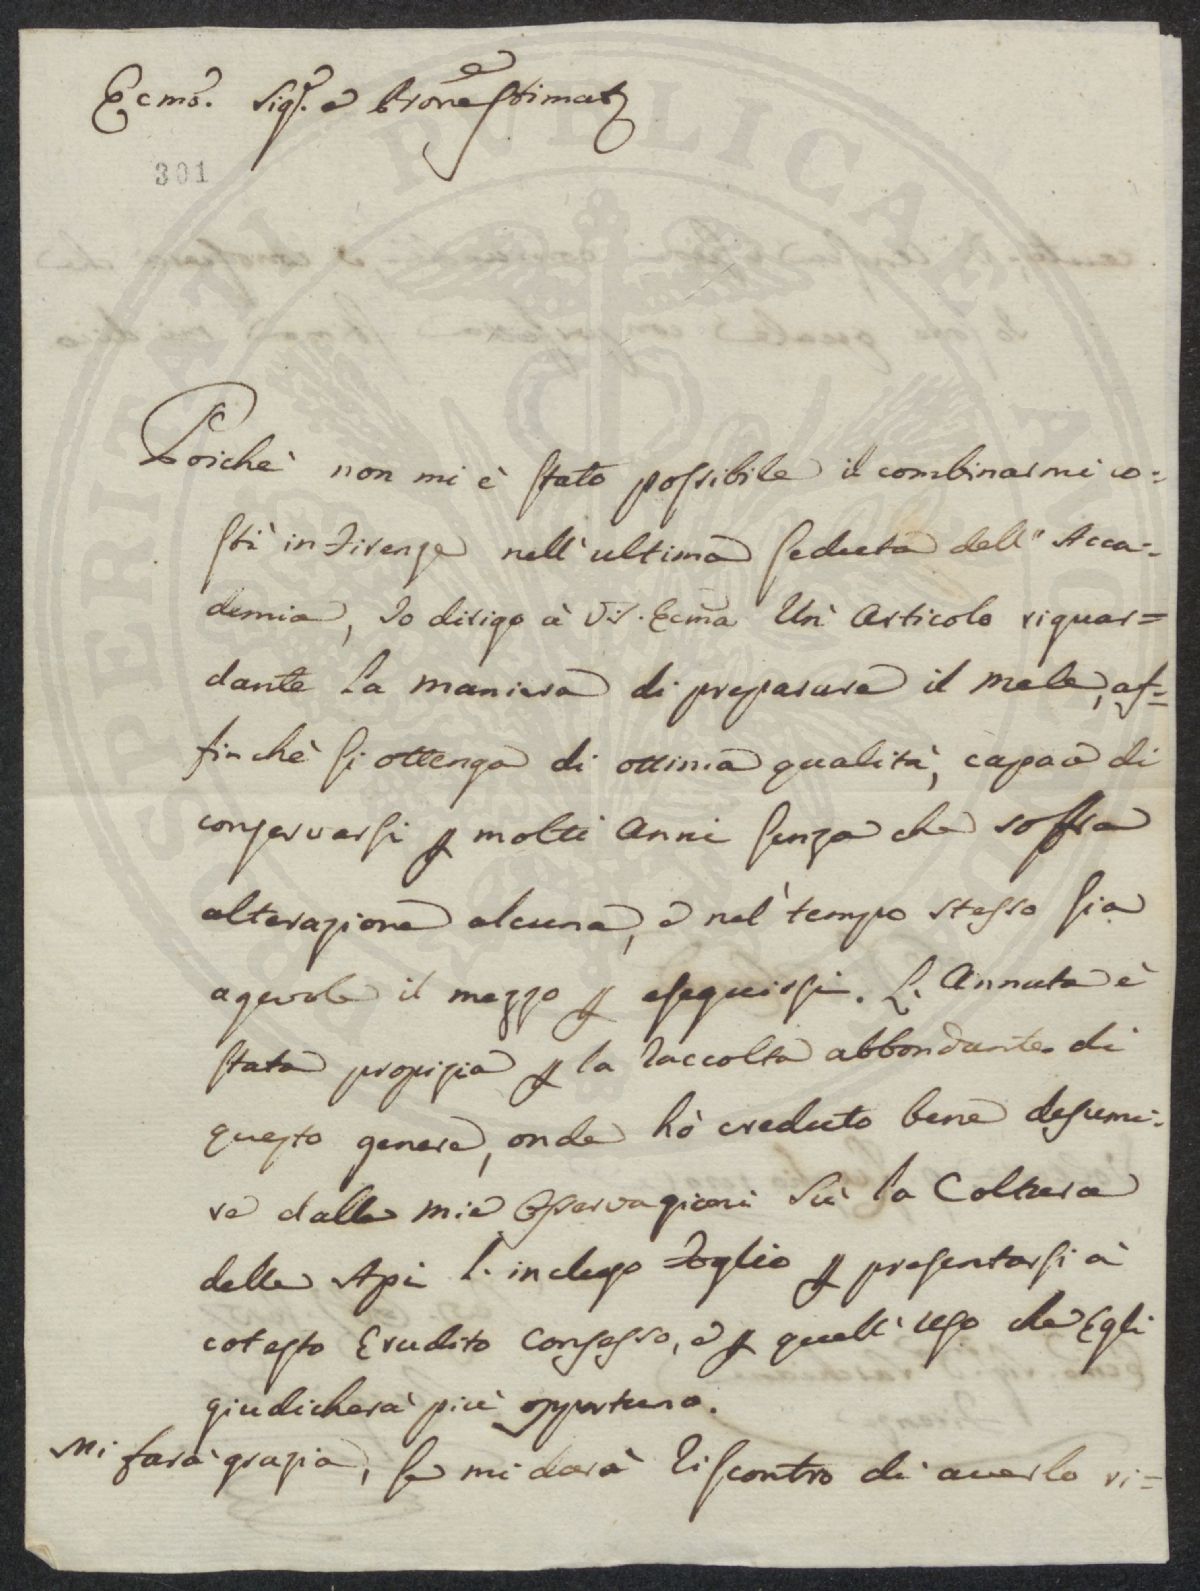 Ecmo. Sigr. e Prone Stimat
301
Poichè non mi è stato possibile il combinarmi co=
stì in Firenze nell'ultima seduta dell'Acca=
demia, Io dirigo à V.S. Ecma Un' Articolo riguar=
dante la maniera di preparare il mele, af=
finchè si ottenga di ottima qualità, capace di
conservarsi p molti Anni senza che soffra
alterazione alcuna, e nel' tempo stesso sia
agevole il mezzo p eseguirsi. L. Annata è
stata propizia p la raccolta abbondante di
questo genere, onde hò creduto bene desumi=
re dalle mie Osservazioni sù la Coltura
delle Api l. incluso Foglio p presentarsi à
cotesto Erudito Consesso, e p quell' uso che Egli
giudicherà più opportuno.
Mi farà grazia, se mi darà riscontro di averlo ri=
SPERITATI PVBLICAE